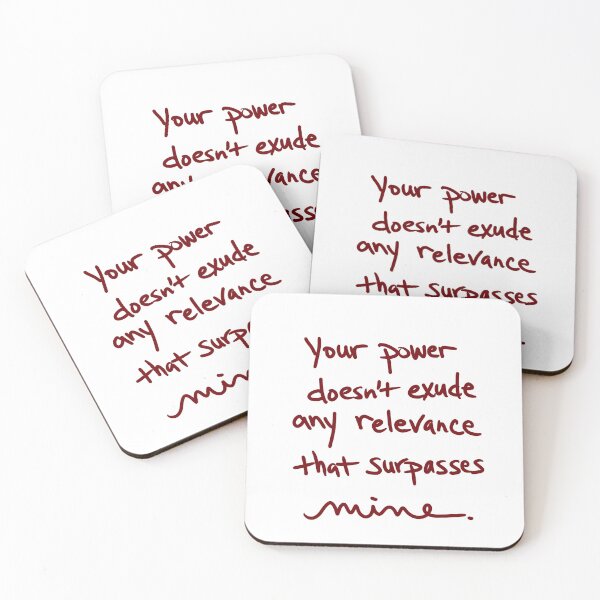 Your power
doesn't exude
any
Your power
doesn't exude
any relevance
that surpasses
Your power
doesn't exude
any relevance
that surpa
mine
Your power
doesn't exude
any relevance
that surpasses
mine.